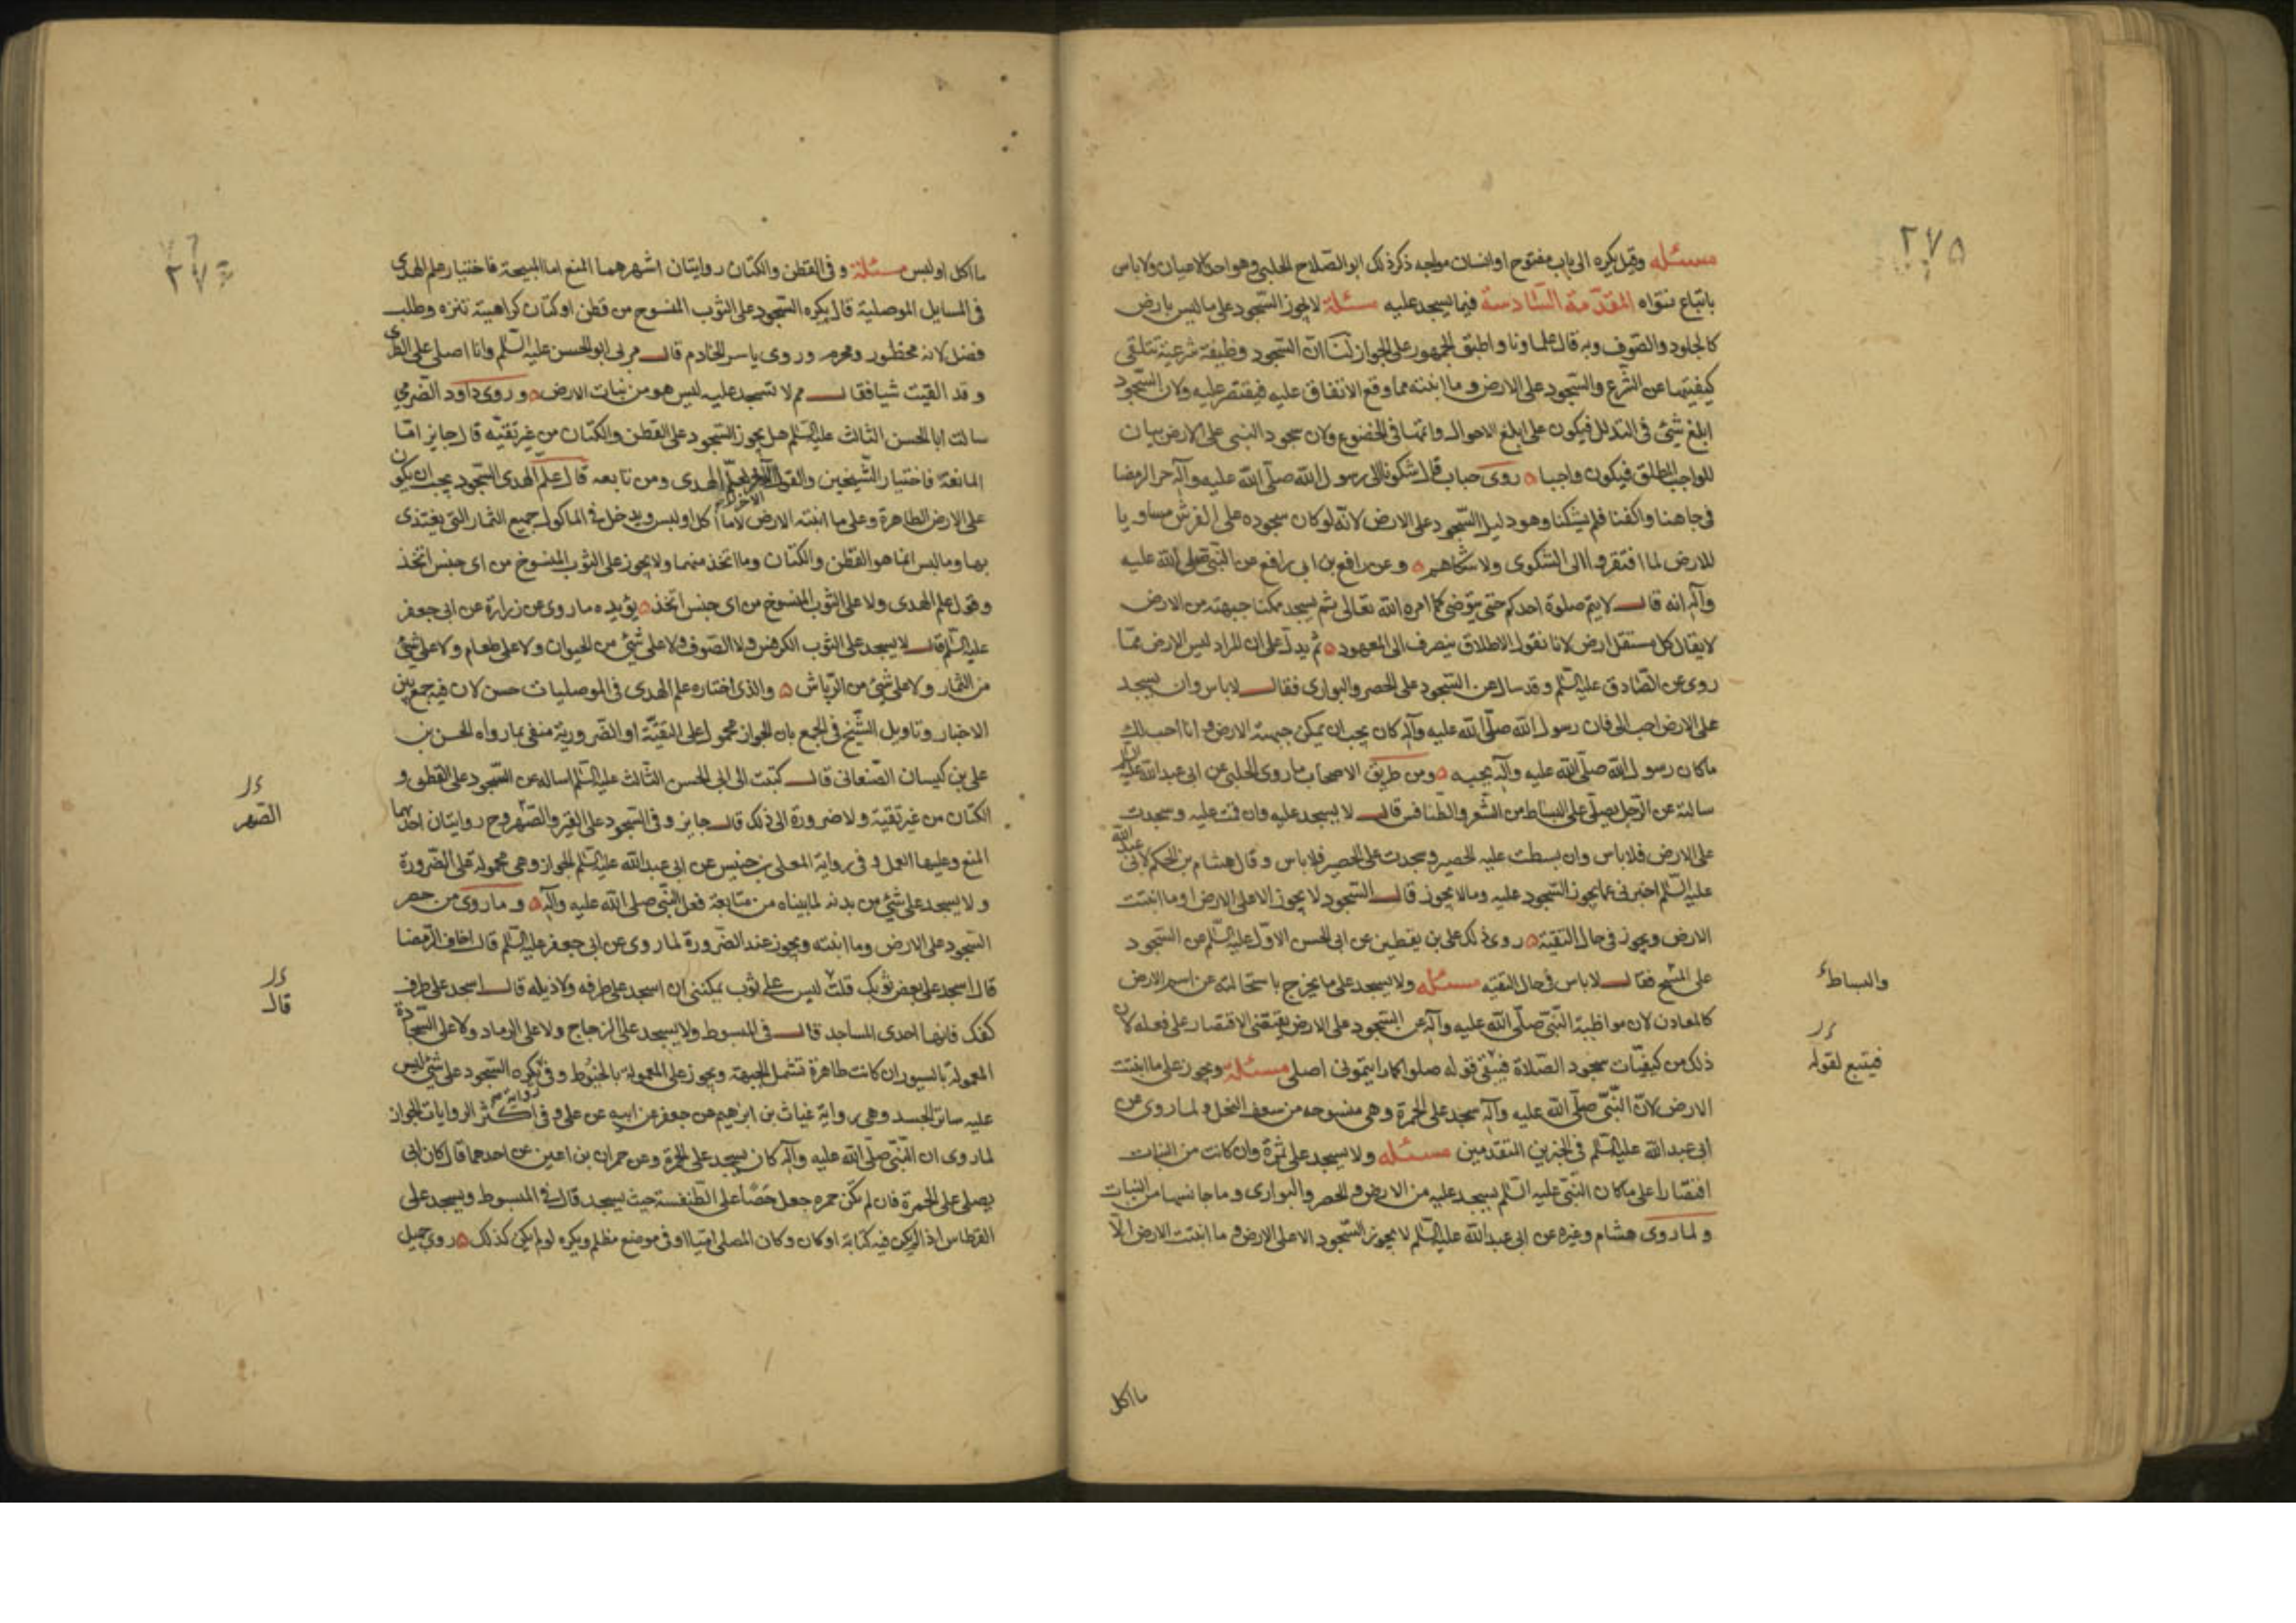 ٢٧٥
مسئله وقيل يكره الى باب مفتوح او انسان مواجه ذكر ذلك ابو الصلاح الحلبي وهو احد الاعيان ولا باس
باتباع فتواه المقدمة السادسة فيما يسجد عليه مسئلة لا يجوز السجود على ما ليس بارض
كالجلود والصوف وبه قال علماونا واطبق الجمهور على الجواز لنا ان السجود وظيفة شرعية تتلقى
كيفيتها عن الشرع والسجود على الارض وما انبتته مما وقع الاتفاق عليه فيقتصر عليه ولان السجود
ابلغ شئ في التذلل فيكون على ابلغ الاحوال واتمها في الخضوع ولان سجود النبي على الارض بيان
للواجب المطلق فيكون واجبا ه روى حباب قال شكونا الى رسول الله صلى الله عليه وآله حر الرمضا
في جباهنا واكفنا فلم يشكنا وهو دليل السجود على الارض لانه لو كان سجوده على الفرش مساويا
للارض لما افتقروا الى الشكوى ولا شكاهم ه وعن رافع بن ابي رافع عن النبي صلى الله عليه
وآله انه قال لا يتم صلوة احدكم حتى يتوضى كما امره الله تعالى ثم يسجد ممكنا جبهته من الارض
لا يقال كل مستقل ارض لانا نقول الاطلاق ينصرف الى المعهود ه ثم يدل على ان المراد ليس الارض ممّا
روى عن الصادق عليه السلم وقد سال عن السجود على الحصر والبوارى فقال لا باس وان يسجد
على الارض احب الى فان رسول الله صلى الله عليه وآله كان يحب ان يمكن جبهته الارض وانا احب لك
ما كان رسول الله صلى الله عليه وآله يحبه ه ومن طريق الاصحاب ما روى الحلبي عن ابي عبدالله عليه السلم
سالته عن الرجل يصلى على البساط من الشعر والطنافس قال لا يسجد عليه وان قمت عليه وسجدت
على الارض فلا باس وان بسطت عليه الحصير وسجدت على الحصير فلا باس وقال هشام بن الحكم لابي عبدالله
عليه السلم اخبرنى عما يجوز السجود عليه وما لا يجوز قال السجود لا يجوز الا على الارض او ما انبتت
الارض ويجوز في حال التقية ه روى ذلك على بن يقطين عن ابي الحسن الاول عليه السلم عن السجود
على المسح فقال لا باس في حال التقيه مسئله ولا يسجد على ما يخرج باستحالته عن اسم الارض
والبساط
كالمعادن لان مواظبة النبي صلى الله عليه وآله على السجود على الارض يقتضى الاقتصار على فعله لان
ذلك من كيفيات سجود الصلاة فيبقى قوله صلوا كما رايتمونى اصلى مسئله ويجوز على ما انبتت
فيتبع لقوله
الارض لان النبي صلى الله عليه وآله سجد على الخمرة وهي منسوجه من سعف النخل ولما روى عن
ابي عبدالله عليه السلم في الخبرين المتقدمين مسئله ولا يسجد على ثمرة وان كانت من النبات
اقتصارا على ما كان النبي عليه السلم يسجد عليه من الارض والحصر والبوارى وما جانسها من النبات
ولما روى هشام وغيره عن ابي عبدالله عليه السلم لا يجوز السجود الا على الارض وما انبتت الارض الا
ما اكل
٢٧٦
ما اكل او لبس مسئلة وفى القطن والكتان روايتان اشهرهما المنع اما المبيحة فاختيار علم الهدى
في المسايل الموصلية قال يكره السجود على الثوب المنسوج من قطن او كتان كراهية تنزه وطلب
فضل لانه محظور ومحرم وروى ياسر الخادم قال مر بي ابو الحسن عليه السلم وانا اصلى على الطبرى
وقد القيت شيا فقال مم لا تسجد عليه ليس هو من نبات الارض ه وروى داود الصرمي
سالت ابا الحسن الثالث عليه السلم هل يجوز السجود على القطن والكتان من غير تقيه قال جايز امّا
المانعة فاختيار الشيخين والقول الآخر لعلم الهدى ومن تابعه قال علم الهدى السجود يجب ان يكون
على الارض الطاهرة وعلى ما انبتته الارض الا ما اكل او لبس ويدخل في الماكول جميع الثمار التى يغتذى
بها وما لبس انما هو القطن والكتان وما اتخذ منهما ولا يجوز على الثوب المنسوخ من اى جنس اتخذ
وقول علم الهدى ولا على الثوب المنسوخ من اى جنس اتخذ ه يؤيده ما روى عن زرارة عن ابي جعفر
عليه السلم قال لا يسجد على الثوب الكرفس ولا الصوف ولا على شئ من الحيوان ولا على طعام ولا على شئ
من الثمار ولا على شئ من الرياش ه والذى اختاره علم الهدى في الموصليات حسن لان فيه جمع بين
الاخبار وتاويل الشيخ في الجمع بان الجواز محمول على التقية او الضرورية منفى بما رواه الحسن بن
على بن كيسان الصنعانى قال كتبت الى ابي الحسن الثالث عليه السلم اساله عن السجود على القطن و
الكتان من غير تقية ولا ضرورة الى ذلك قال جايز وفى السجود على القير والصهروج روايتان احدهما
الصهر
المنع وعليها العمل وفى رواية المعلى بن خنيس عن ابي عبدالله عليه السلم الجواز وهى محمولة على الضرورة
ولا يسجد على شئ من بدنه لما بيناه من متابعة فعل النبي صلى الله عليه وآله ه وما روى من حصر
السجود على الارض وما انبتته ويجوز عند الضرورة لما روى عن ابي جعفر عليه السلم قال اخاف الرمضا
قال اسجد على بعض ثوبك قلت ليس على ثوب يمكننى ان اسجد على طرفه ولا ذيله قال اسجد على ظرف
قال
كفك فانها احدى المساجد قال في المبسوط ولا يسجد على الزجاج ولا على الرماد ولا على السجادة
المعمولة بالسيور ان كانت ظاهرة تشمل الجبهة ويجوز على المعمولة بالخيوط وفى رواية يكره السجود على شئ ليس
عليه ساير الجسد وهى رواية غياث بن ابرهيم عن جعفر عن ابيه عن على وفى اكثر الروايات الجواز
لما روى ان النبي صلى الله عليه وآله كان يسجد على الخمرة وعن حمران بن اعين عن احدهما قال كان ابي
يصلى على الخمرة فان لم تكن خمره جعل حصًا على الطنفسة حيث يسجد قال في المبسوط ويسجد على
القرطاس اذا لم يكن فيه كتابة او كان وكان المصلى اميا او في موضع مظلم ويكره لو لم يكن كذلك ه روى جميل